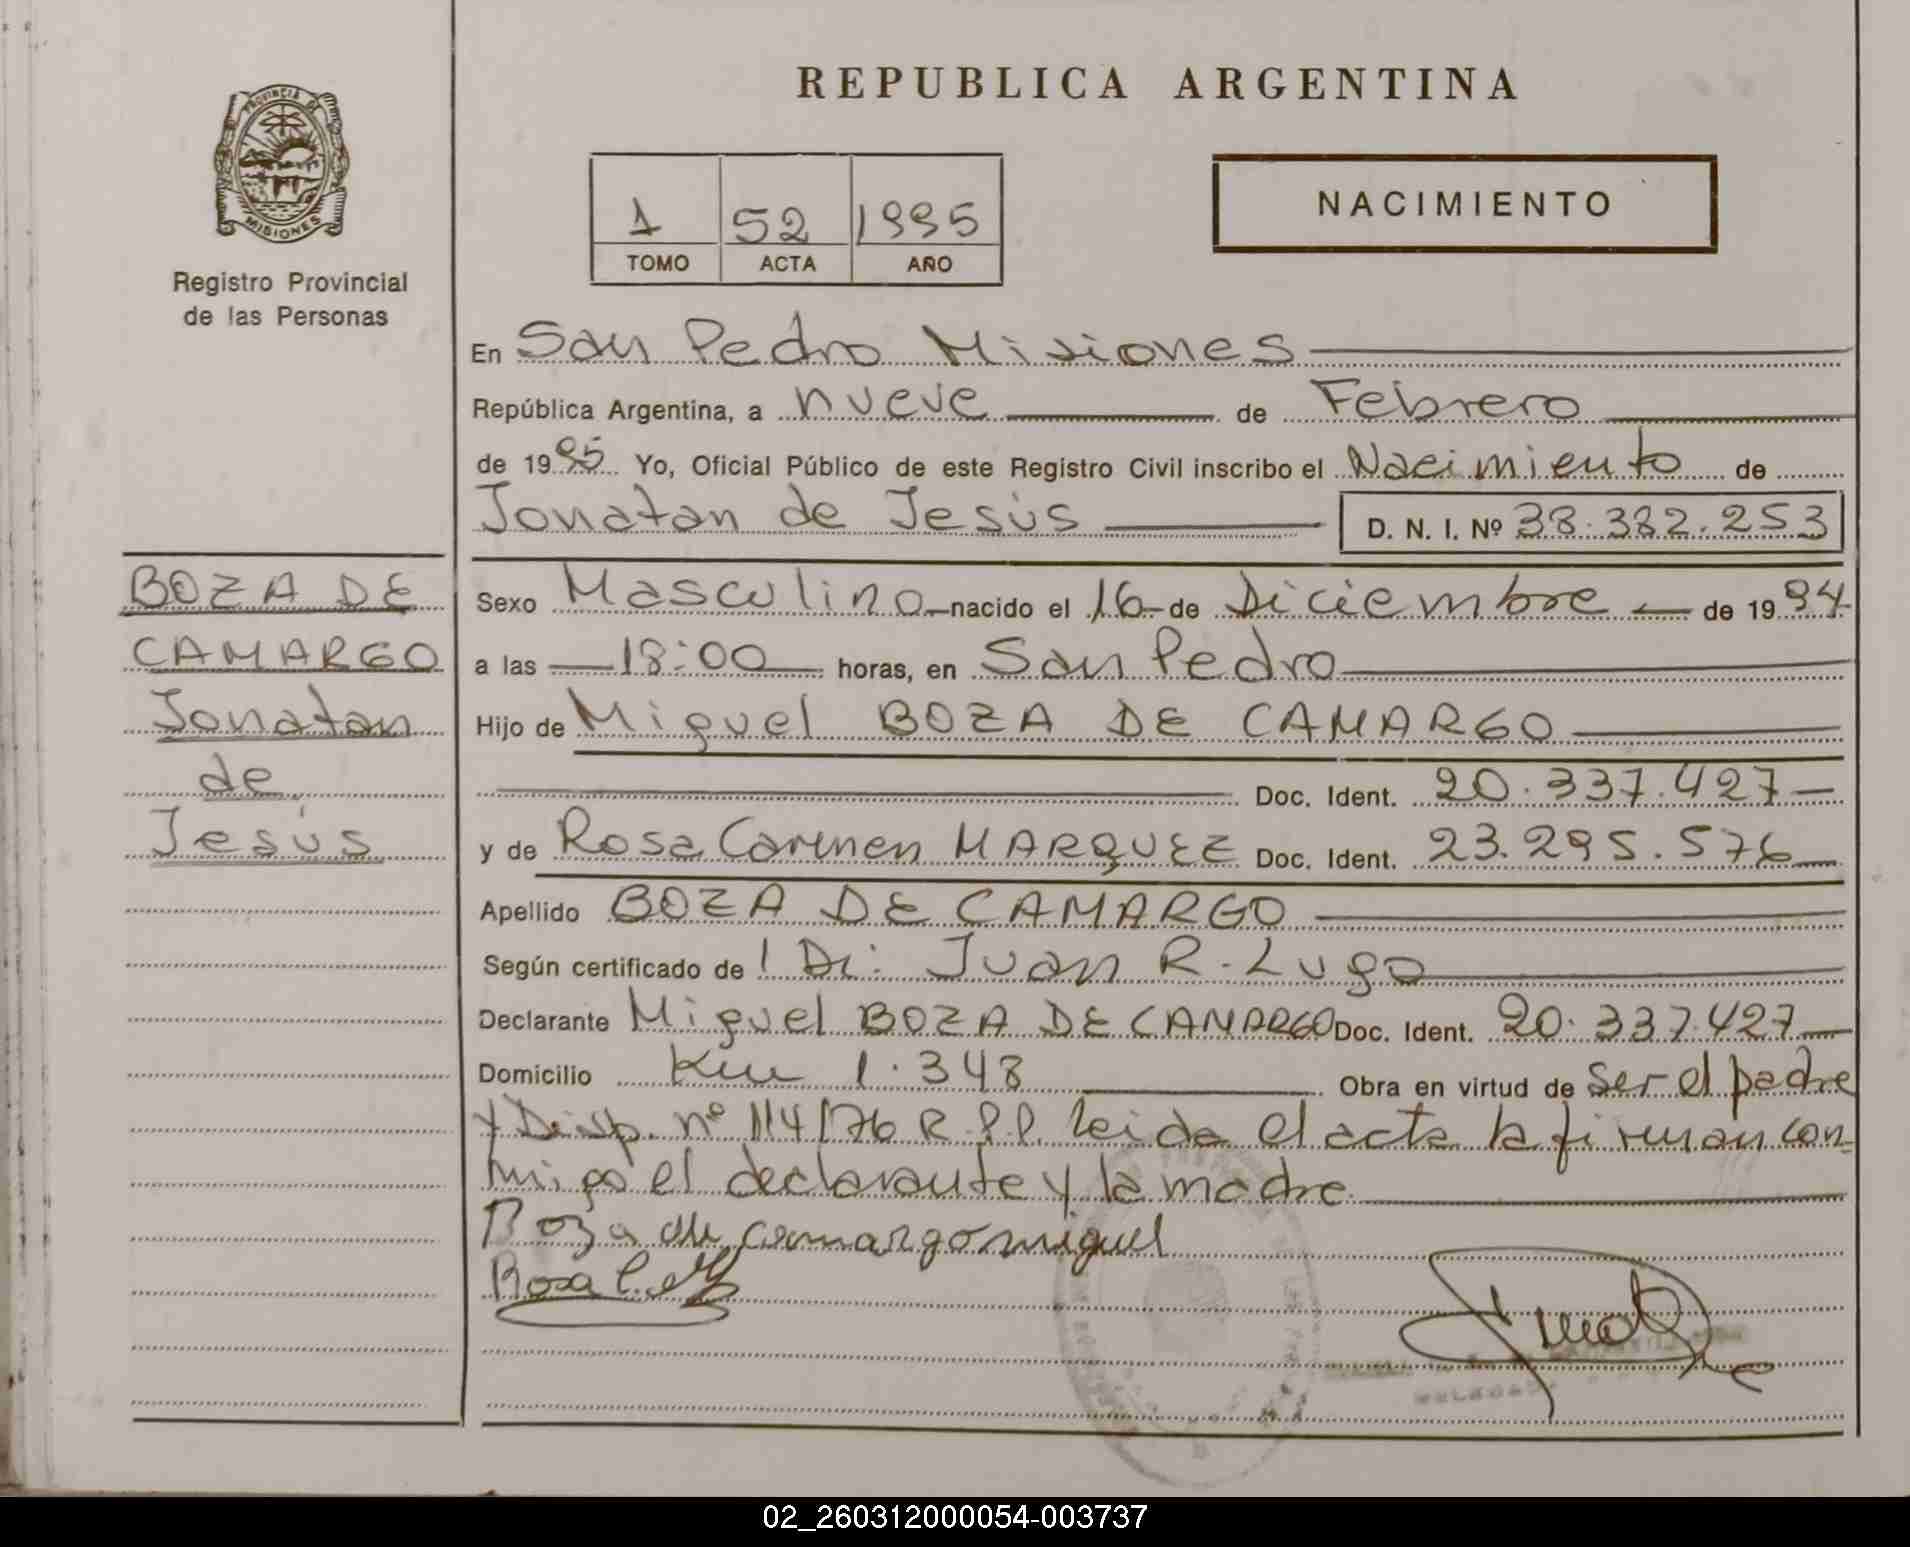 REPUBLICA ARGENTINA
PROVINCIA DE
MISIONES
Registro Provincial
de las Personas
1 52 1995
TOMO ACTA AÑO
NACIMIENTO
En San Pedro Misiones
República Argentina, a nueve de Febrero
de 1995 Yo, Oficial Público de este Registro Civil inscribo el Nacimiento de
Jonatan de Jesús D. N. I. Nº 38.382.253
BOZA DE
CAMARGO
Jonatan
de
Jesús
Sexo Masculino nacido el 16 de Diciembre de 1994
a las 18:00 horas, en San Pedro
Hijo de Miguel BOZA DE CAMARGO
Doc. Ident. 20.337.427
y de Rosa Carmen MARQUEZ Doc. Ident. 23.295.576
Apellido BOZA DE CAMARGO
Según certificado de Juan R. Lugo
Declarante Miguel BOZA DE CAMARGO Doc. Ident. 20.337.427
Domicilio Km 1.348 Obra en virtud de ser el padre
y Disp. nº 114/76 R.P.P. leida el acta la firman con-
migo el declarante y la madre
Boza de camargo miguel
Rosa C.
02_260312000054-003737